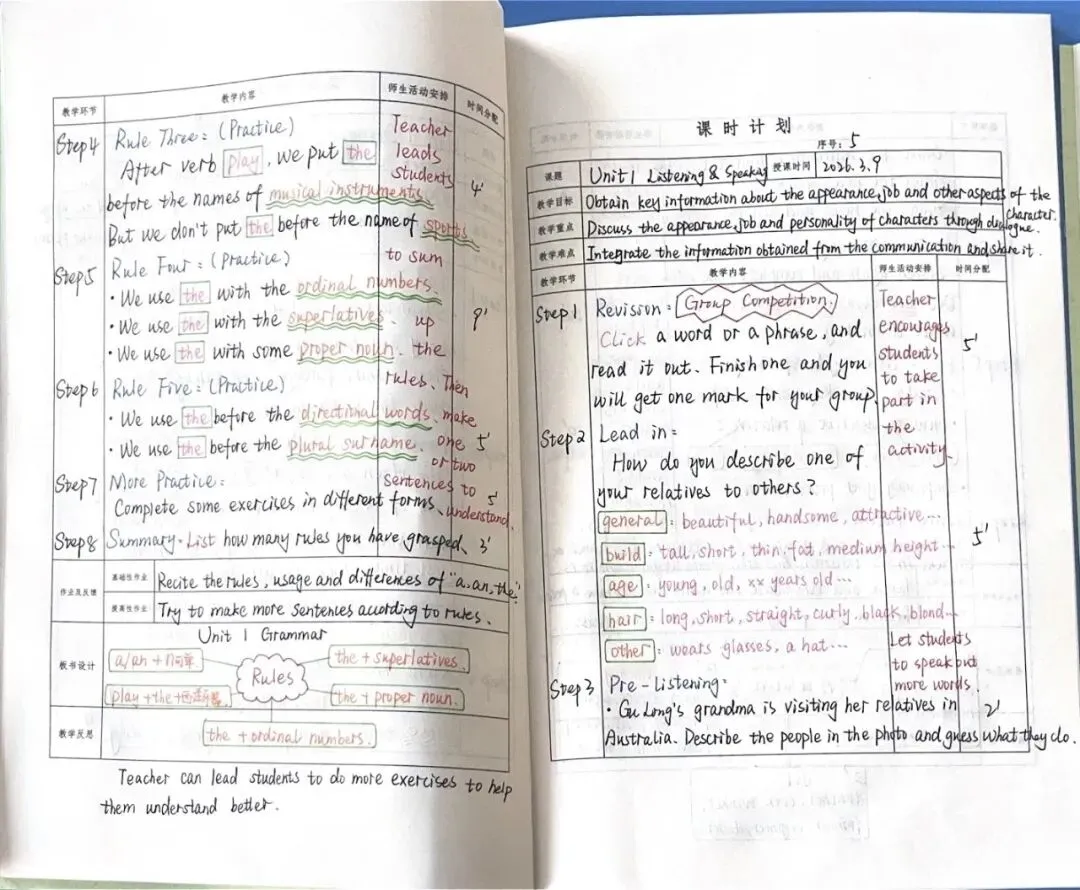 教学环节 教学内容 师生活动安排 时间分配
Step4 Rule Three: (Practice) Teacher
After verb play, we put the leads
students 4'
before the names of musical instruments.
But we don't put the before the name of sports.
Step5 Rule Four: (Practice) to sum
· We use the with the ordinal numbers.
· We use the with the superlatives. up 9'
· We use the with some proper noun. the
Step6 Rule Five: (Practice) rules. Then
· We use the before the directional words. make
· We use the before the plural surname. one 5'
or two
Step7 More Practice: sentences to 5'
Complete some exercises in different forms. understand.
Step8 Summary. List how many rules you have grasped. 3'
作业及反馈 基础性作业 Recite the rules, usage and differences of "a. an, the".
提高性作业 Try to make more sentences according to rules.
板书设计 Unit 1 Grammar
a/an + n可单. the + superlatives.
Rules
play + the + 西洋乐器. the + proper noun.
教学反思 the + ordinal numbers.
Teacher can lead students to do more exercises to help
them understand better.
课时计划
序号: 5
课题 Unit 1 Listening & Speaking 授课时间 2036.3.9
教学目标 Obtain key information about the appearance, job and other aspects of the character.
教学重点 Discuss the appearance, job and personality of characters through dialogue.
教学难点 Integrate the information obtained from the communication and share it.
教学环节 教学内容 师生活动安排 时间分配
Step 1 Revision: Group Competition. Teacher
Click a word or a phrase, and encourages 5'
students
read it out. Finish one and you to take
will get one mark for your group. part in
Step 2 Lead in: the
How do you describe one of activity.
your relatives to others?
general: beautiful, handsome, attractive...
build: tall, short, thin, fat, medium height... 5'
age: young, old, xx years old...
hair: long, short, straight, curly, black, blond...
other: wears glasses, a hat... Let students
to speak out
Step 3 Pre-Listening: more words.
· Gu Long's grandma is visiting her relatives in 2'
Australia. Describe the people in the photo and guess what they do.